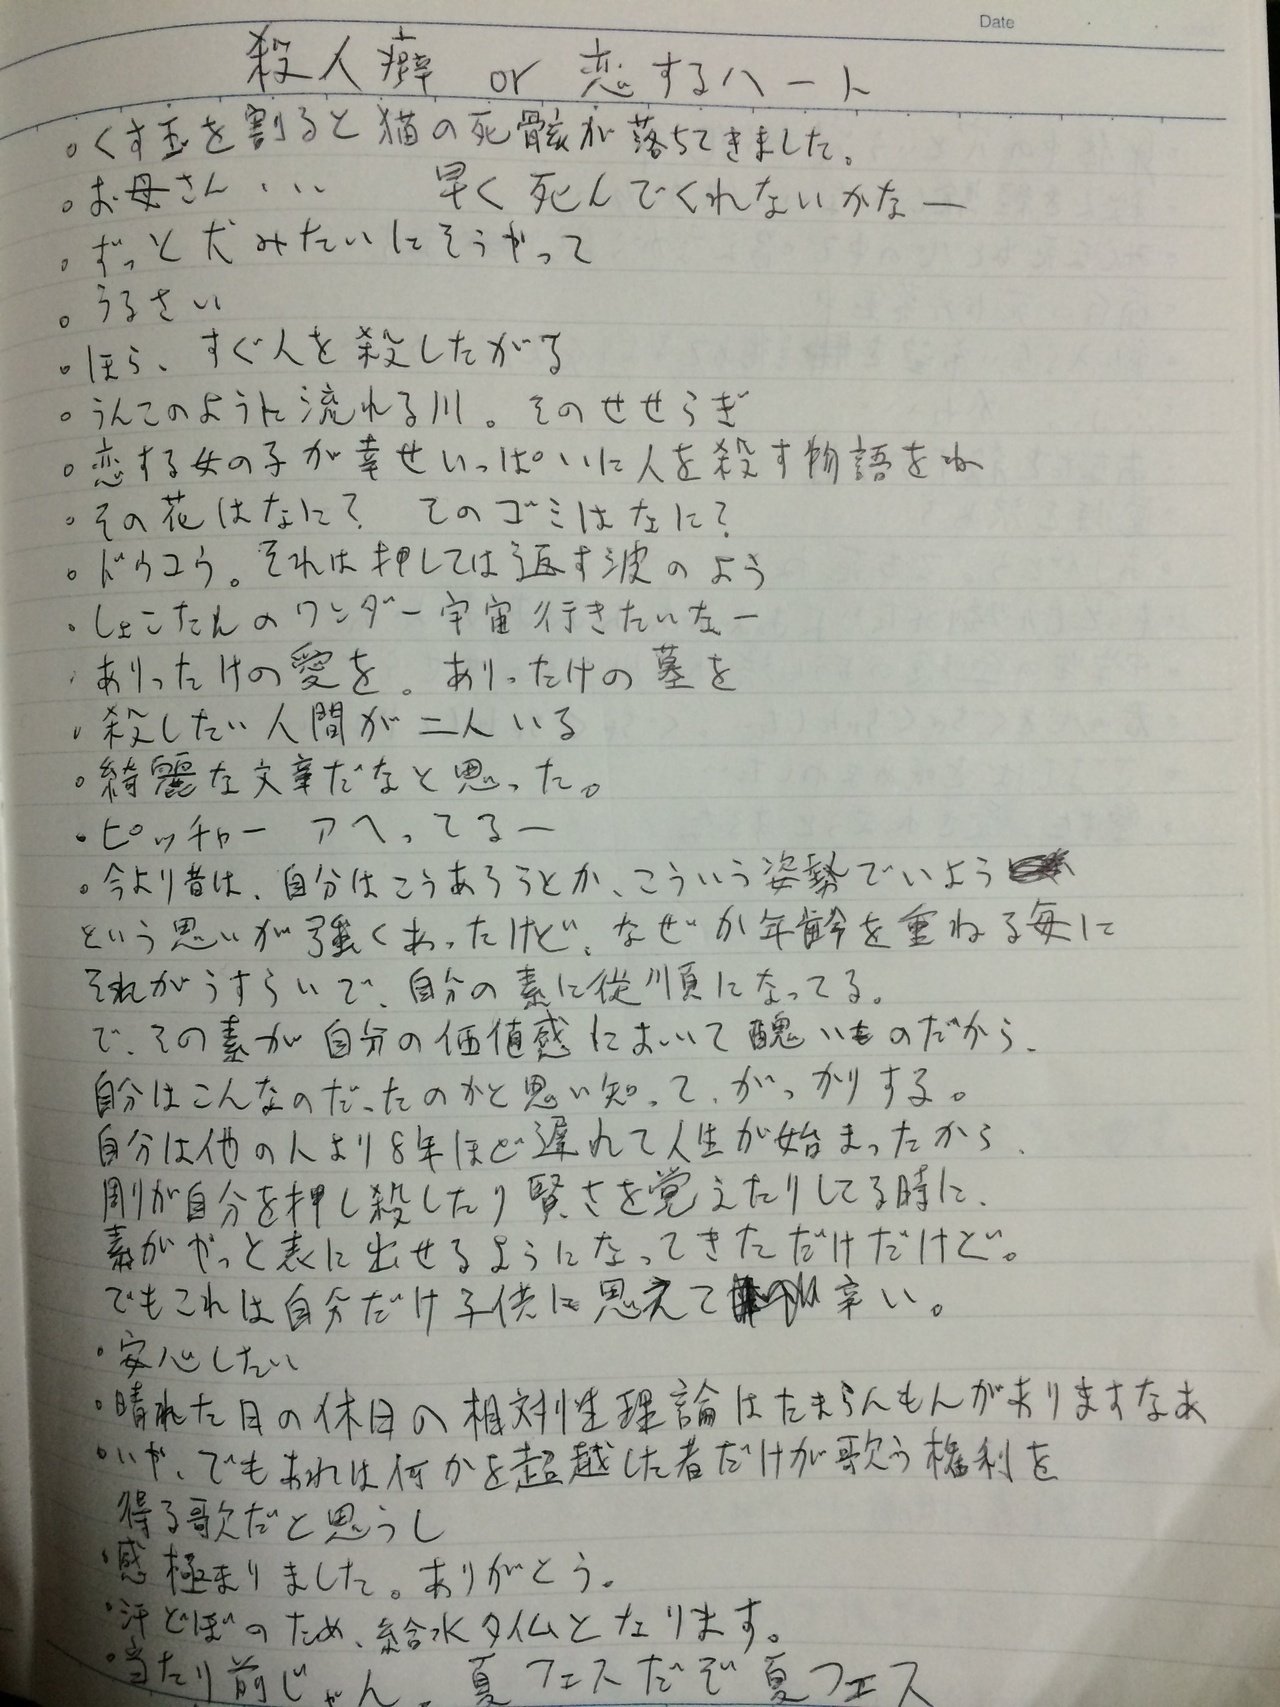 Date
殺人癖 or 恋するハート
。くす玉を割ると猫の死骸が落ちてきました。
。お母さん... 早く死んでくれないかなー
。ずっと犬みたいにそうやって
。うるさい
。ほら、すぐ人を殺したがる
。うんこのように流れる川。そのせせらぎ
。恋する女の子が幸せいっぱいに人を殺す物語をね
。その花はなに? そのゴミはなに?
。ドウコウ。それは押しては返す波のよう
・しょこたんのワンダー宇宙行きたいなー
・ありったけの愛を。ありったけの墓を
。殺したい人間が二人いる
。綺麗な文章だなと思った。
・ピッチャー アヘってるー
。今より昔は、自分はこうあろうとか、こういう姿勢でいよう
という思いが強くあったけど、なぜか年齢を重ねる毎に
それがうすらいで、自分の素に従順になってる。
で、その素が自分の価値感において醜いものだから、
自分はこんなのだったのかと思い知って、がっかりする。
自分は他の人より8年ほど遅れて人生が始まったから、
周りが自分を押し殺したり賢さを覚えたりしてる時に、
素がやっと表に出せるようになってきただけだけど。
でもこれは自分だけ子供に思えて辛い。
・安心したい
・晴れた日の休日の相対性理論はたまらんもんがありますなあ
。いや、でもあれは何かを超越した者だけが歌う権利を
得る歌だと思うし
・感極まりました。ありがとう。
・汗どぼのため、給水タイムとなります。
・当たり前じゃん。夏フェスだぞ夏フェス